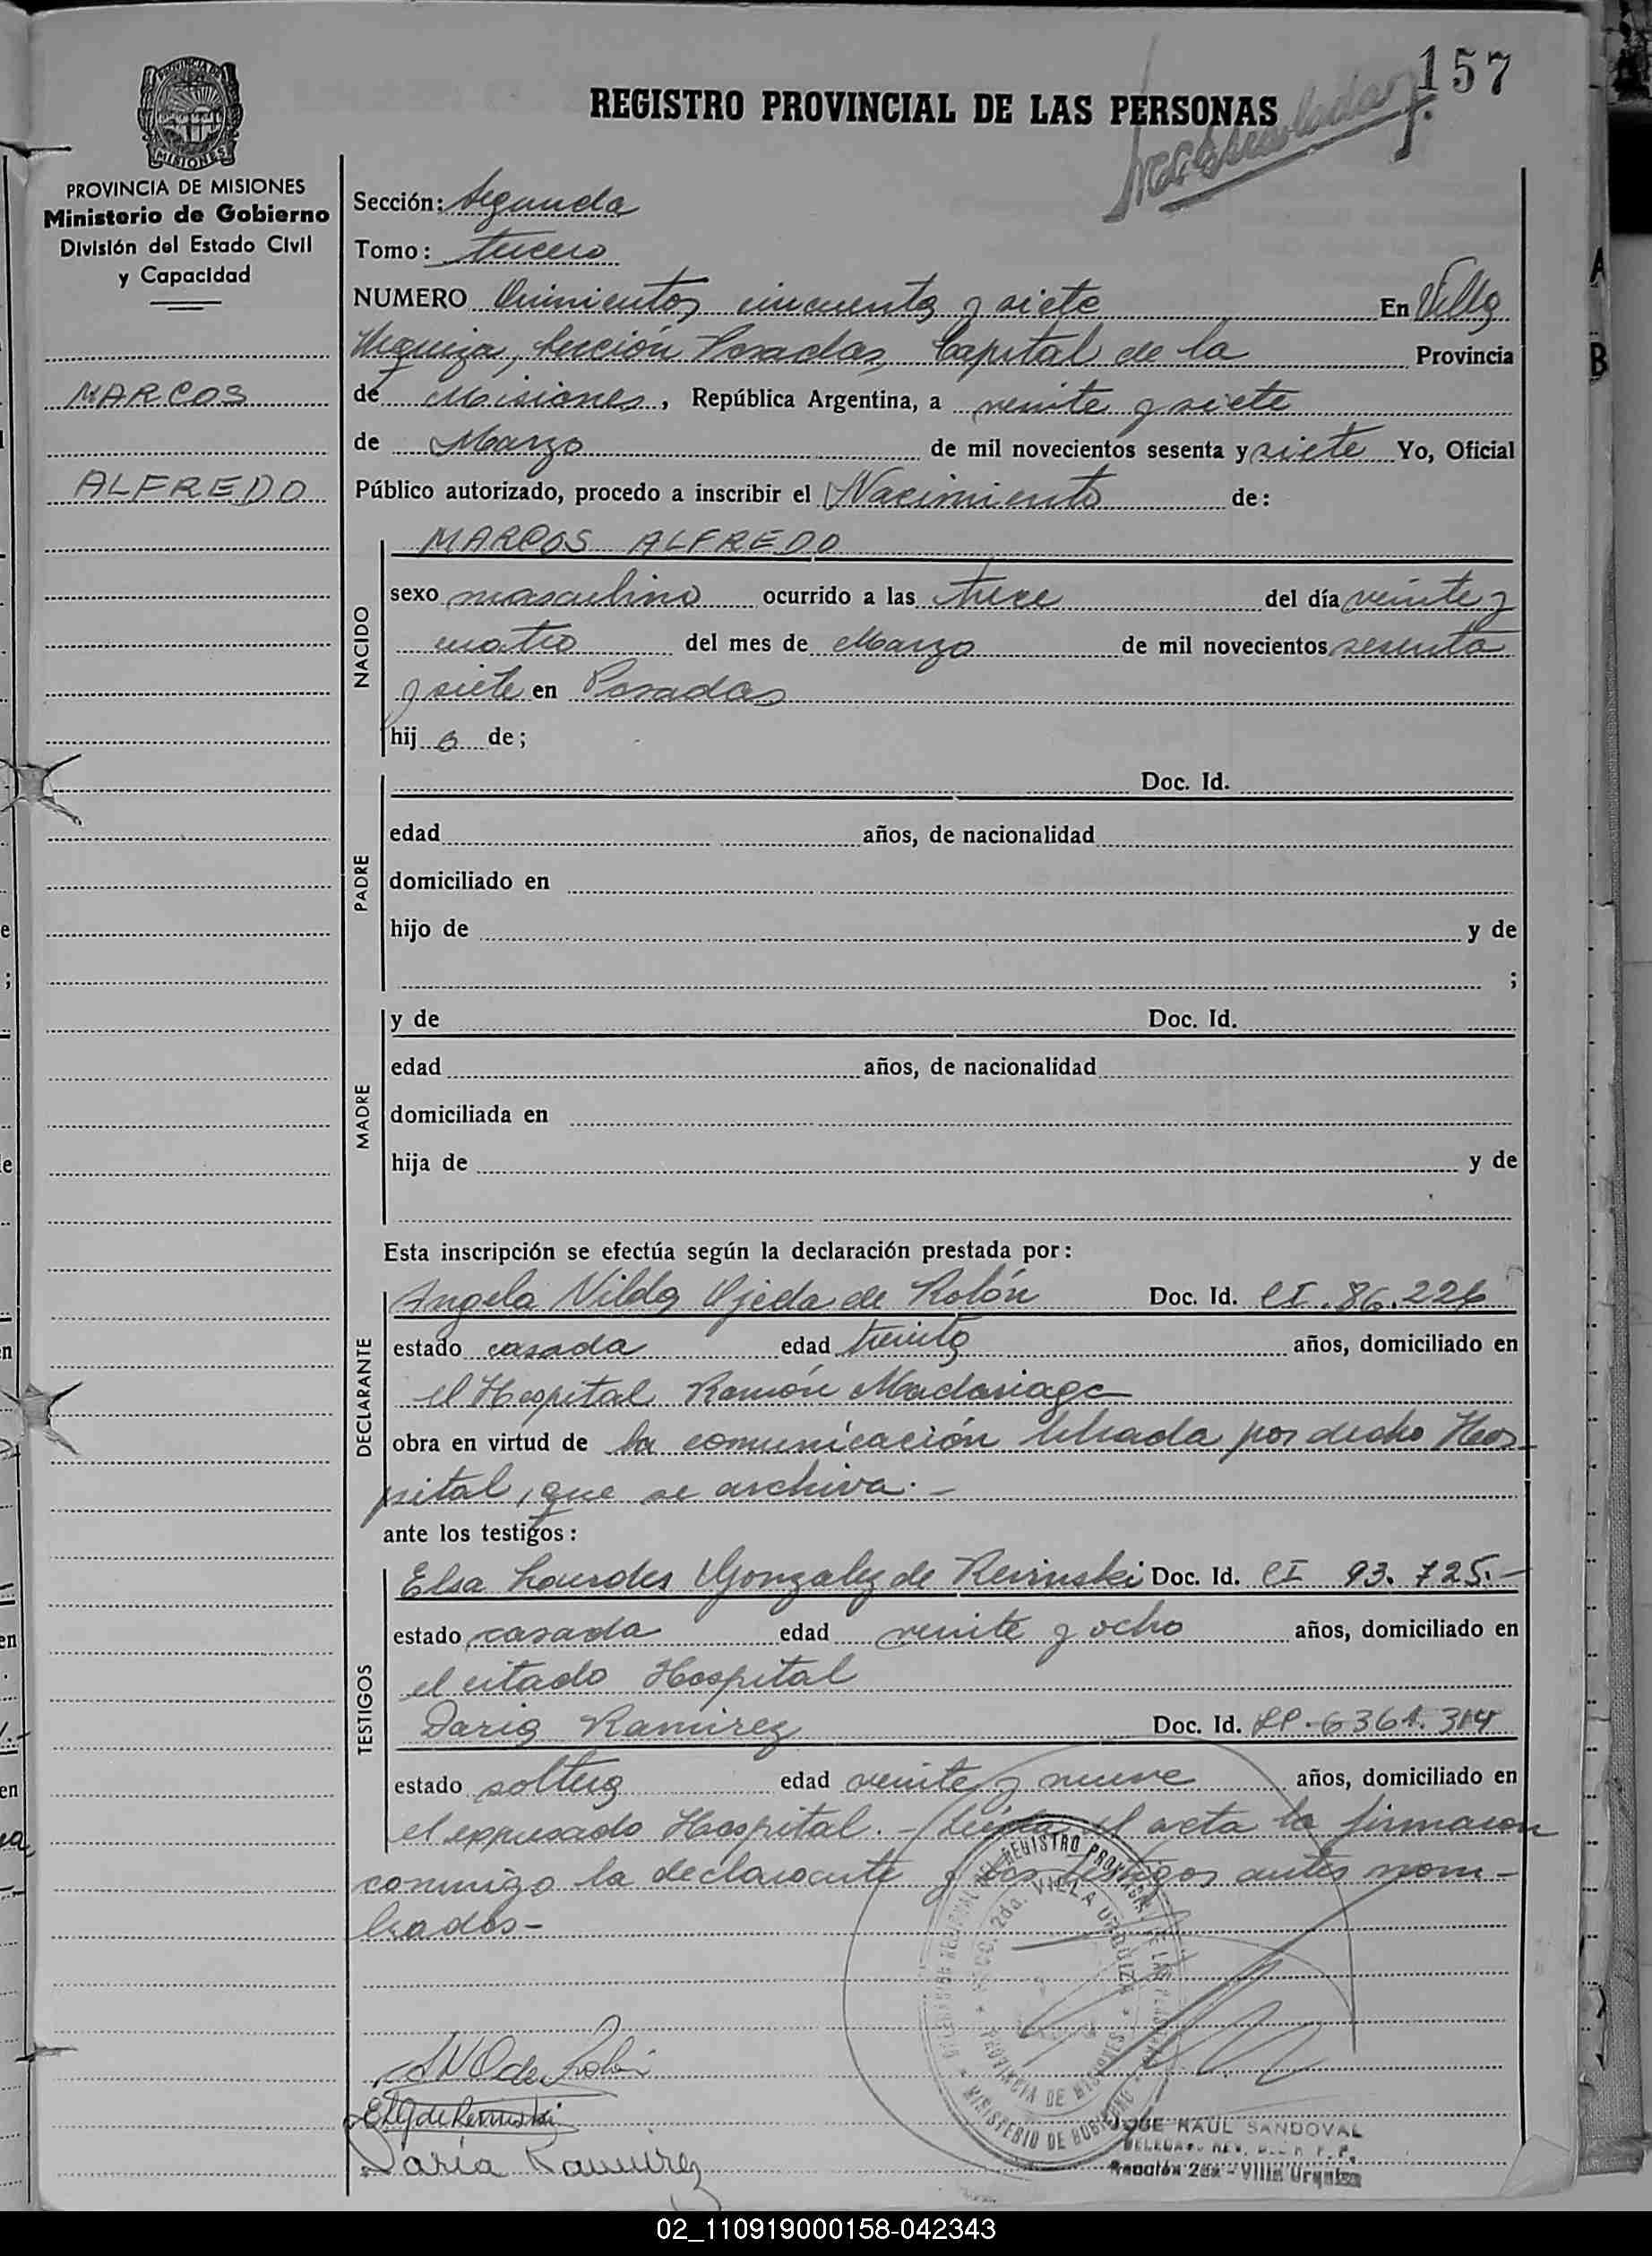 157
REGISTRO PROVINCIAL DE LAS PERSONAS
PROVINCIA DE MISIONES
Ministerio de Gobierno
División del Estado Civil
y Capacidad
MARCOS
ALFREDO
Sección: Segunda
Tomo: tercero
NUMERO Quinientos cincuenta y siete En Villa
Urquiza, Sección Posadas, Capital de la Provincia
de Misiones, República Argentina, a veinte y siete
de Marzo de mil novecientos sesenta y siete Yo, Oficial
Público autorizado, procedo a inscribir el Nacimiento de:
NACIDO
MARCOS ALFREDO
sexo masculino ocurrido a las trece del día veinte y
cuatro del mes de Marzo de mil novecientos sesenta
y siete en Posadas
hij o de;
PADRE
Doc. Id.
edad años, de nacionalidad
domiciliado en
hijo de y de
;
MADRE
y de Doc. Id.
edad años, de nacionalidad
domiciliada en
hija de y de
Esta inscripción se efectúa según la declaración prestada por:
DECLARANTE
Angela Nilda Ojeda de Rolón Doc. Id. CI. 86.226
estado casada edad treinta años, domiciliado en
el Hospital Ramón Madariaga
obra en virtud de la comunicación librada por dicho Hos-
pital, que se archiva.-
ante los testigos:
TESTIGOS
Elsa Lourdes Gonzalez de Doc. Id. CI 93.725.-
estado casada edad veinte y ocho años, domiciliado en
el citado Hospital
Daria Ramirez Doc. Id.
estado soltera edad veinte y nueve años, domiciliado en
el expresado Hospital.- Leída el acta la firmaron
conmigo la declarante y los testigos antes nom-
brados-
REGISTRO PROVINCIAL DE LAS PERSONAS
SECC. 2da. VILLA URQUIZA
PROVINCIA DE MISIONES
MINISTERIO DE GOBIERNO
Daria Ramirez
JOSE RAUL SANDOVAL
Sección 2da - Villa Urquiza
02_110919000158-042343